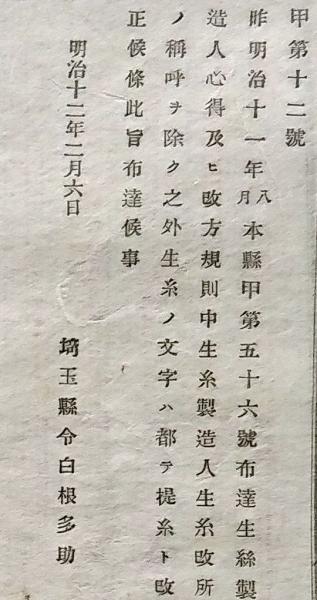 甲第十二號
昨明治十一年八月本縣甲第五十六號布達生絲製
造人心得及ヒ改方規則中生糸製造人生糸改所
ノ稱呼ヲ除ク之外生糸ノ文字ハ都テ提糸ト改
正候條此旨布達候事
明治十二年二月六日
埼玉縣令白根多助